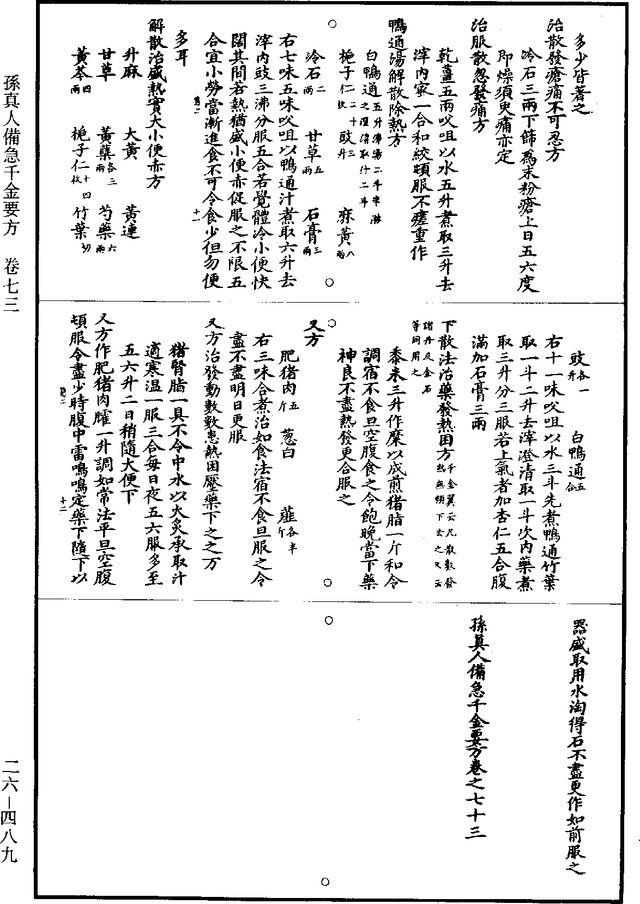 多少皆著之
治散發瘡痛不可忍方
冷石三兩下篩為末粉瘡上日五六度
即燥須臾痛亦定
治服散忽發痛方
乾薑五兩㕮咀以水五升煮取三升去
滓內蜜一合和絞頓服不瘥重作
鴨通湯解散除熱方
白鴨通五升沸湯二斗半淋之澄清取汁二斗
梔子仁二十枚 豉三升 麻黃八兩
冷石二兩 甘草五兩 石膏三兩
右七味五味㕮咀以鴨通汁煮取六升去
滓內豉三沸分服五合若覺體冷小便快
闊其間若熱猶盛小便赤促服之不限五
合宜小勞當漸進食不可令食少但勿便
多耳
解散治盛熱實大小便赤方
升麻 大黃 黃連
甘草 黃蘗各三兩 芍藥六兩
黃芩四兩 梔子仁十四枚 竹葉切
豉各一升 白鴨通五合
右十一味㕮咀以水三斗先煮鴨通竹葉
取一斗二升去滓澄清取一斗次內藥煮
取三升分三服若上氣者加杏仁五合腹
滿加石膏三兩
下散法治藥發熱困方千金翼云凡散數發熱無頓下去之又云諸丹及金石等同用之
黍米三升作糜以成煎豬脂一斤和令
調宿不食旦空腹食之令飽晚當下藥
神良不盡熱發更合服之
又方
肥豬肉五斤 蔥白 薤各半斤
右三味合煮治如食法宿不食旦服之令
盡不盡明日更服
又方治發動數數患熱困壓藥下之之方
豬腎脂一具不令中水以火炙承取汁
適寒溫一服三合每日夜五六服多至
五六升二日稍隨大便下
又方作肥豬肉臛一升調如常法平旦空腹
頓服令盡少時腹中雷鳴鳴定藥下隨下以
器盛取用水淘得石不盡更作如前服之
孫真人備急千金要方卷之七十三
孫真人備急千金要方 卷七三
二六—四八九